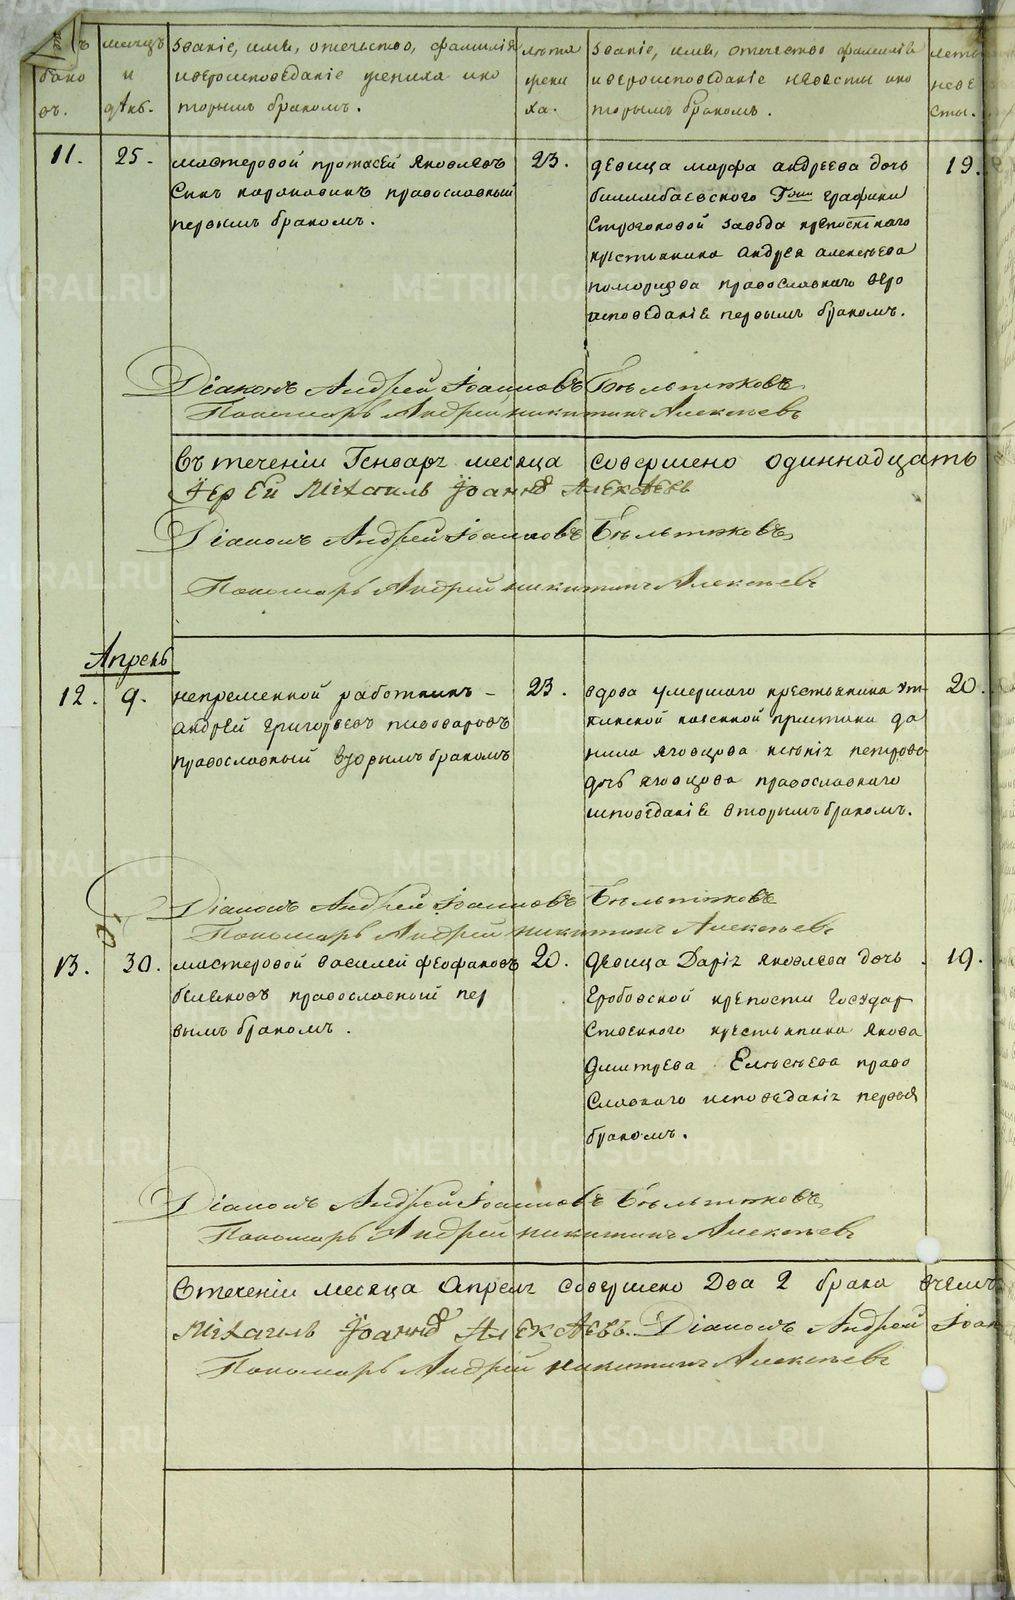 бако
въ.
мѣсяцъ
и
день.
званіе, имя, отечество, фамилія
и вѣроисповѣданіе жениха и ко
торымъ бракомъ.
лѣта
жени
ха.
званіе, имя, отечество фамилія
и вѣроисповѣданіе невѣсты и ко
торымъ бракомъ.
лета
неве
сты.
11.
25.
мастеровой протасей яковлевъ
сынъ православный
первымъ бракомъ.
23.
девица марфа андреева дочь
билимбаевского Гжи графини
Строгоновой завода крепостнаго
крестьянина андрея алексеева
православнаго веро
исповеданіе первымъ бракомъ.
19.
Діаконъ Андрей Іоанновъ
Пономарь Андрей никитинъ Алексѣевъ
Въ теченіи Генваря месяца совершено одиннадцать
Іерей Михаилъ Іоанновъ Алексѣевъ
Діаконъ Андрей Іоанновъ
Пономарь Андрей никитинъ Алексѣевъ
Апрель
12.
9.
непременной работникъ –
андрей григорьевъ пивоваровъ
православный вторымъ бракомъ
23.
вдова умершаго крестьянина ут-
кинской казенной пристани да
нила яговцова петрова
дочь яговцова православнаго
исповеданіе вторымъ бракомъ.
20.
Діаконъ Андрей Іоанновъ
Пономарь Андрей никитинъ Алексѣевъ
13.
30.
мастеровой василей феофановъ
православный пер
вымъ бракомъ.
20.
девица Дарія яковлева дочь
Гробовской крепости государ
ственного крестьянина якова
дмитрева Елисеева право
славнаго исповеданія первая
бракомъ.
19.
Діаконъ Андрей Іоанновъ
Пономарь Андрей никитинъ Алексѣевъ
Втеченіи месяца апреля совершено два 2 брака вчемъ
Михаилъ Іоанновъ Алексѣевъ. Діаконъ Андрей Іоан
Пономарь Андрей никитинъ Алексѣевъ
METRIKI.GASO-URAL.RU